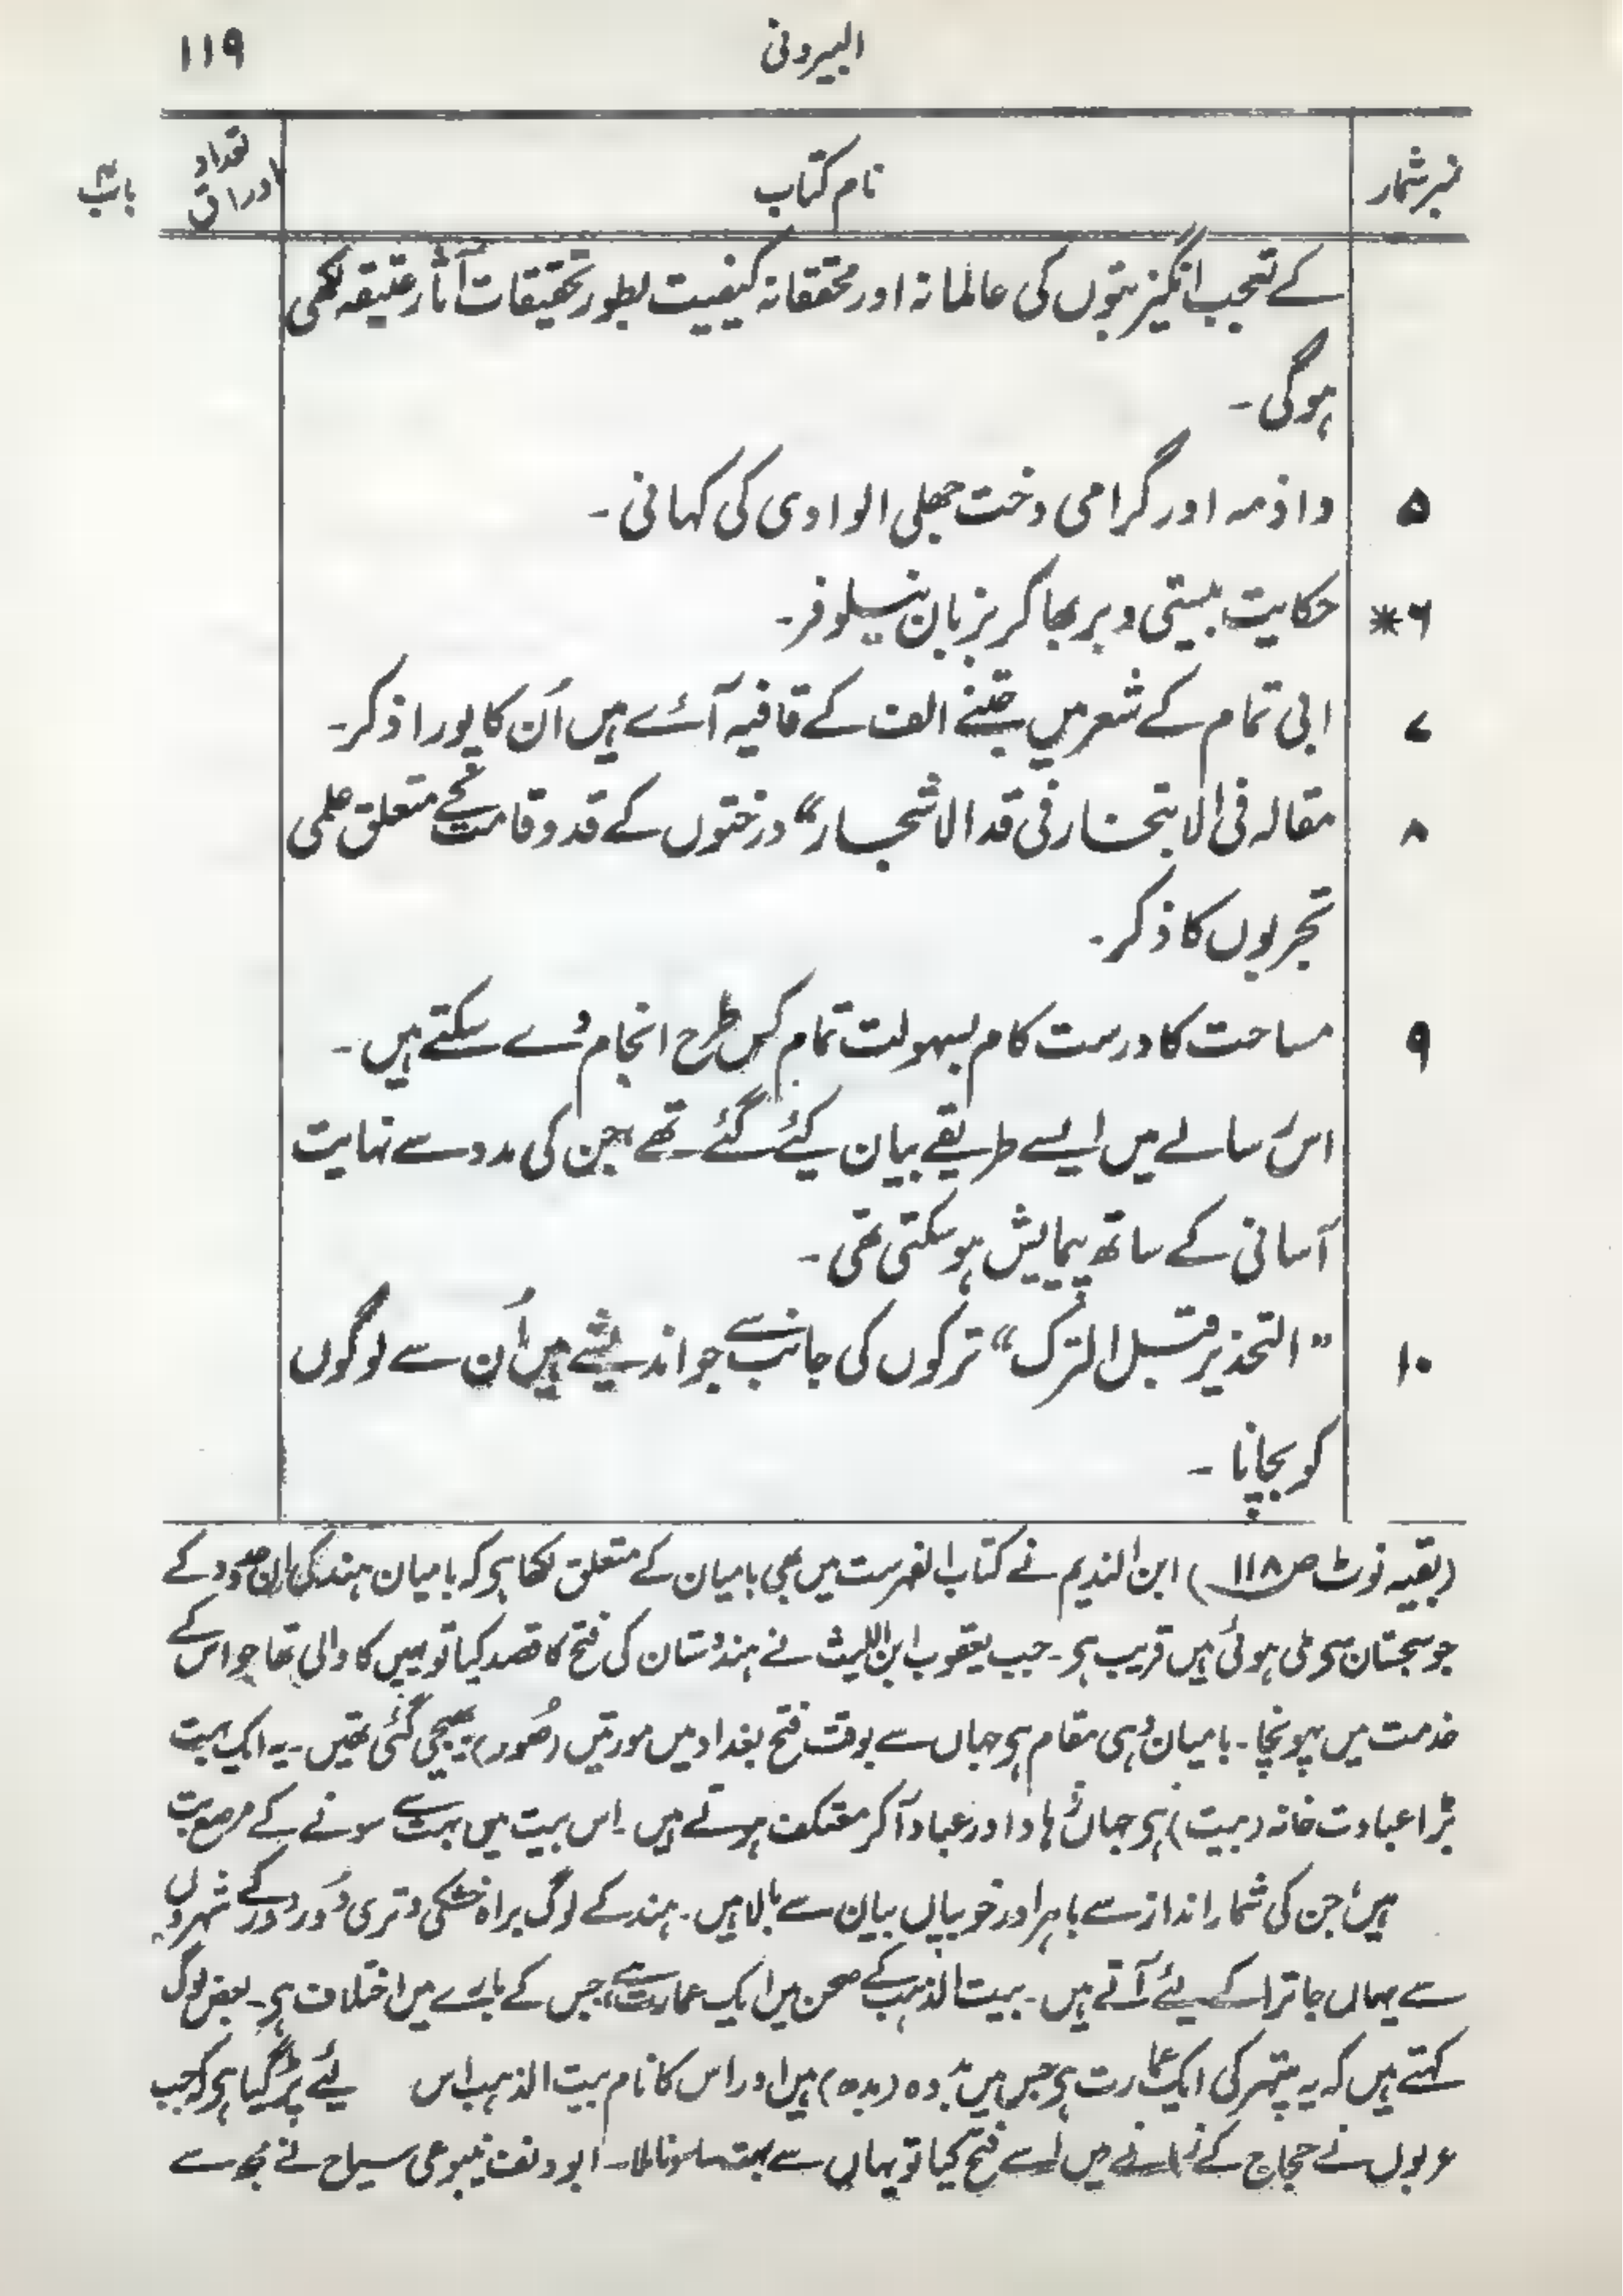 ۱۱۹
البیرونی
نمبر شمار
نام کتاب
تعداد اوراق
باب
کے تعجب انگیز بتوں کی عالمانہ اور محققانہ کیفیت بطور تحقیقات آثار عتیقہ لکھی
ہوگی ۔
۵ واذمہ اور گرامی دخت جھلی الوادی کی کہانی ۔
۶* حکایت بیستی و بربھاکر بزبان نیلوفر ۔
۷ ابی تمام کے شعر میں جتنے الف کے قافیہ آئے ہیں اُن کا پورا ذکر ۔
۸ مقالہ فی الابتخار فی قد الاشجار“ درختوں کے قد وقامت کے متعلق علمی
تجربوں کا ذکر ۔
۹ مساحت کا درست کام بسہولت تمام کس طرح انجام دے سکتے ہیں ۔
اس رسالے میں ایسے طریقے بیان کئے گئے تھے، جن کی مدد سے نہایت
آسانی کے ساتھ پیمایش ہوسکتی تھی ۔
۱۰ ”التحذیر قبل الترک“ ترکوں کی جانب سے جو اندیشے ہیں اُن سے لوگوں
کو بچانا ۔
(بقیہ نوٹ ص ۱۱۸) ابن الندیم نے کتاب الفہرست میں بھی بامیان کے متعلق لکھا ہی کہ بامیان ہند کی ان حدود کے
جو سجستان سی ملی ہوئی ہیں قریب ہی ۔ جب یعقوب ابن اللیث نے ہندستان کی فتح کا قصد کیا تو یہیں کا والی تھا جو اس کے
خدمت میں پہونچا ۔ بامیان وُہی مقام ہی جہاں سے بوقت فتح بغداد میں مورتیں (صُور) بھیجی گئی تھیں ۔ یہ ایک بہت
بڑا عبادت خانہ (بیت) ہی جہاں زُہاد اور عباد آکر معتکف ہوتے ہیں ۔ اس بیت میں بہت سے سونے کے مرصع بت
ہیں، جن کی شمار انداز سے باہر اور خوبیاں بیان سے بالا ہیں ۔ ہند کے لوگ براہ خشکی و تری دُور دور کے شہروں
سے یہاں جاترا کے لیئے آتے ہیں ۔ بیت الذہب کے صحن میں ایک عمارت ہے، جس کے بارے میں اختلاف ہی ۔ بعض لوگ
کہتے ہیں کہ یہ پتھر کی ایک عمارت ہی جس میں بُدہ (بدہ) ہیں اور اس کا نام بیت الذہب اس لیئے پڑ گیا ہی کہ جب
عربوں نے حجاج کے زمانے میں اسے فتح کیا تو یہاں سے بہت سا سونا ملا ۔ ابو دلف ینبوعی سیاح نے مجھ سے